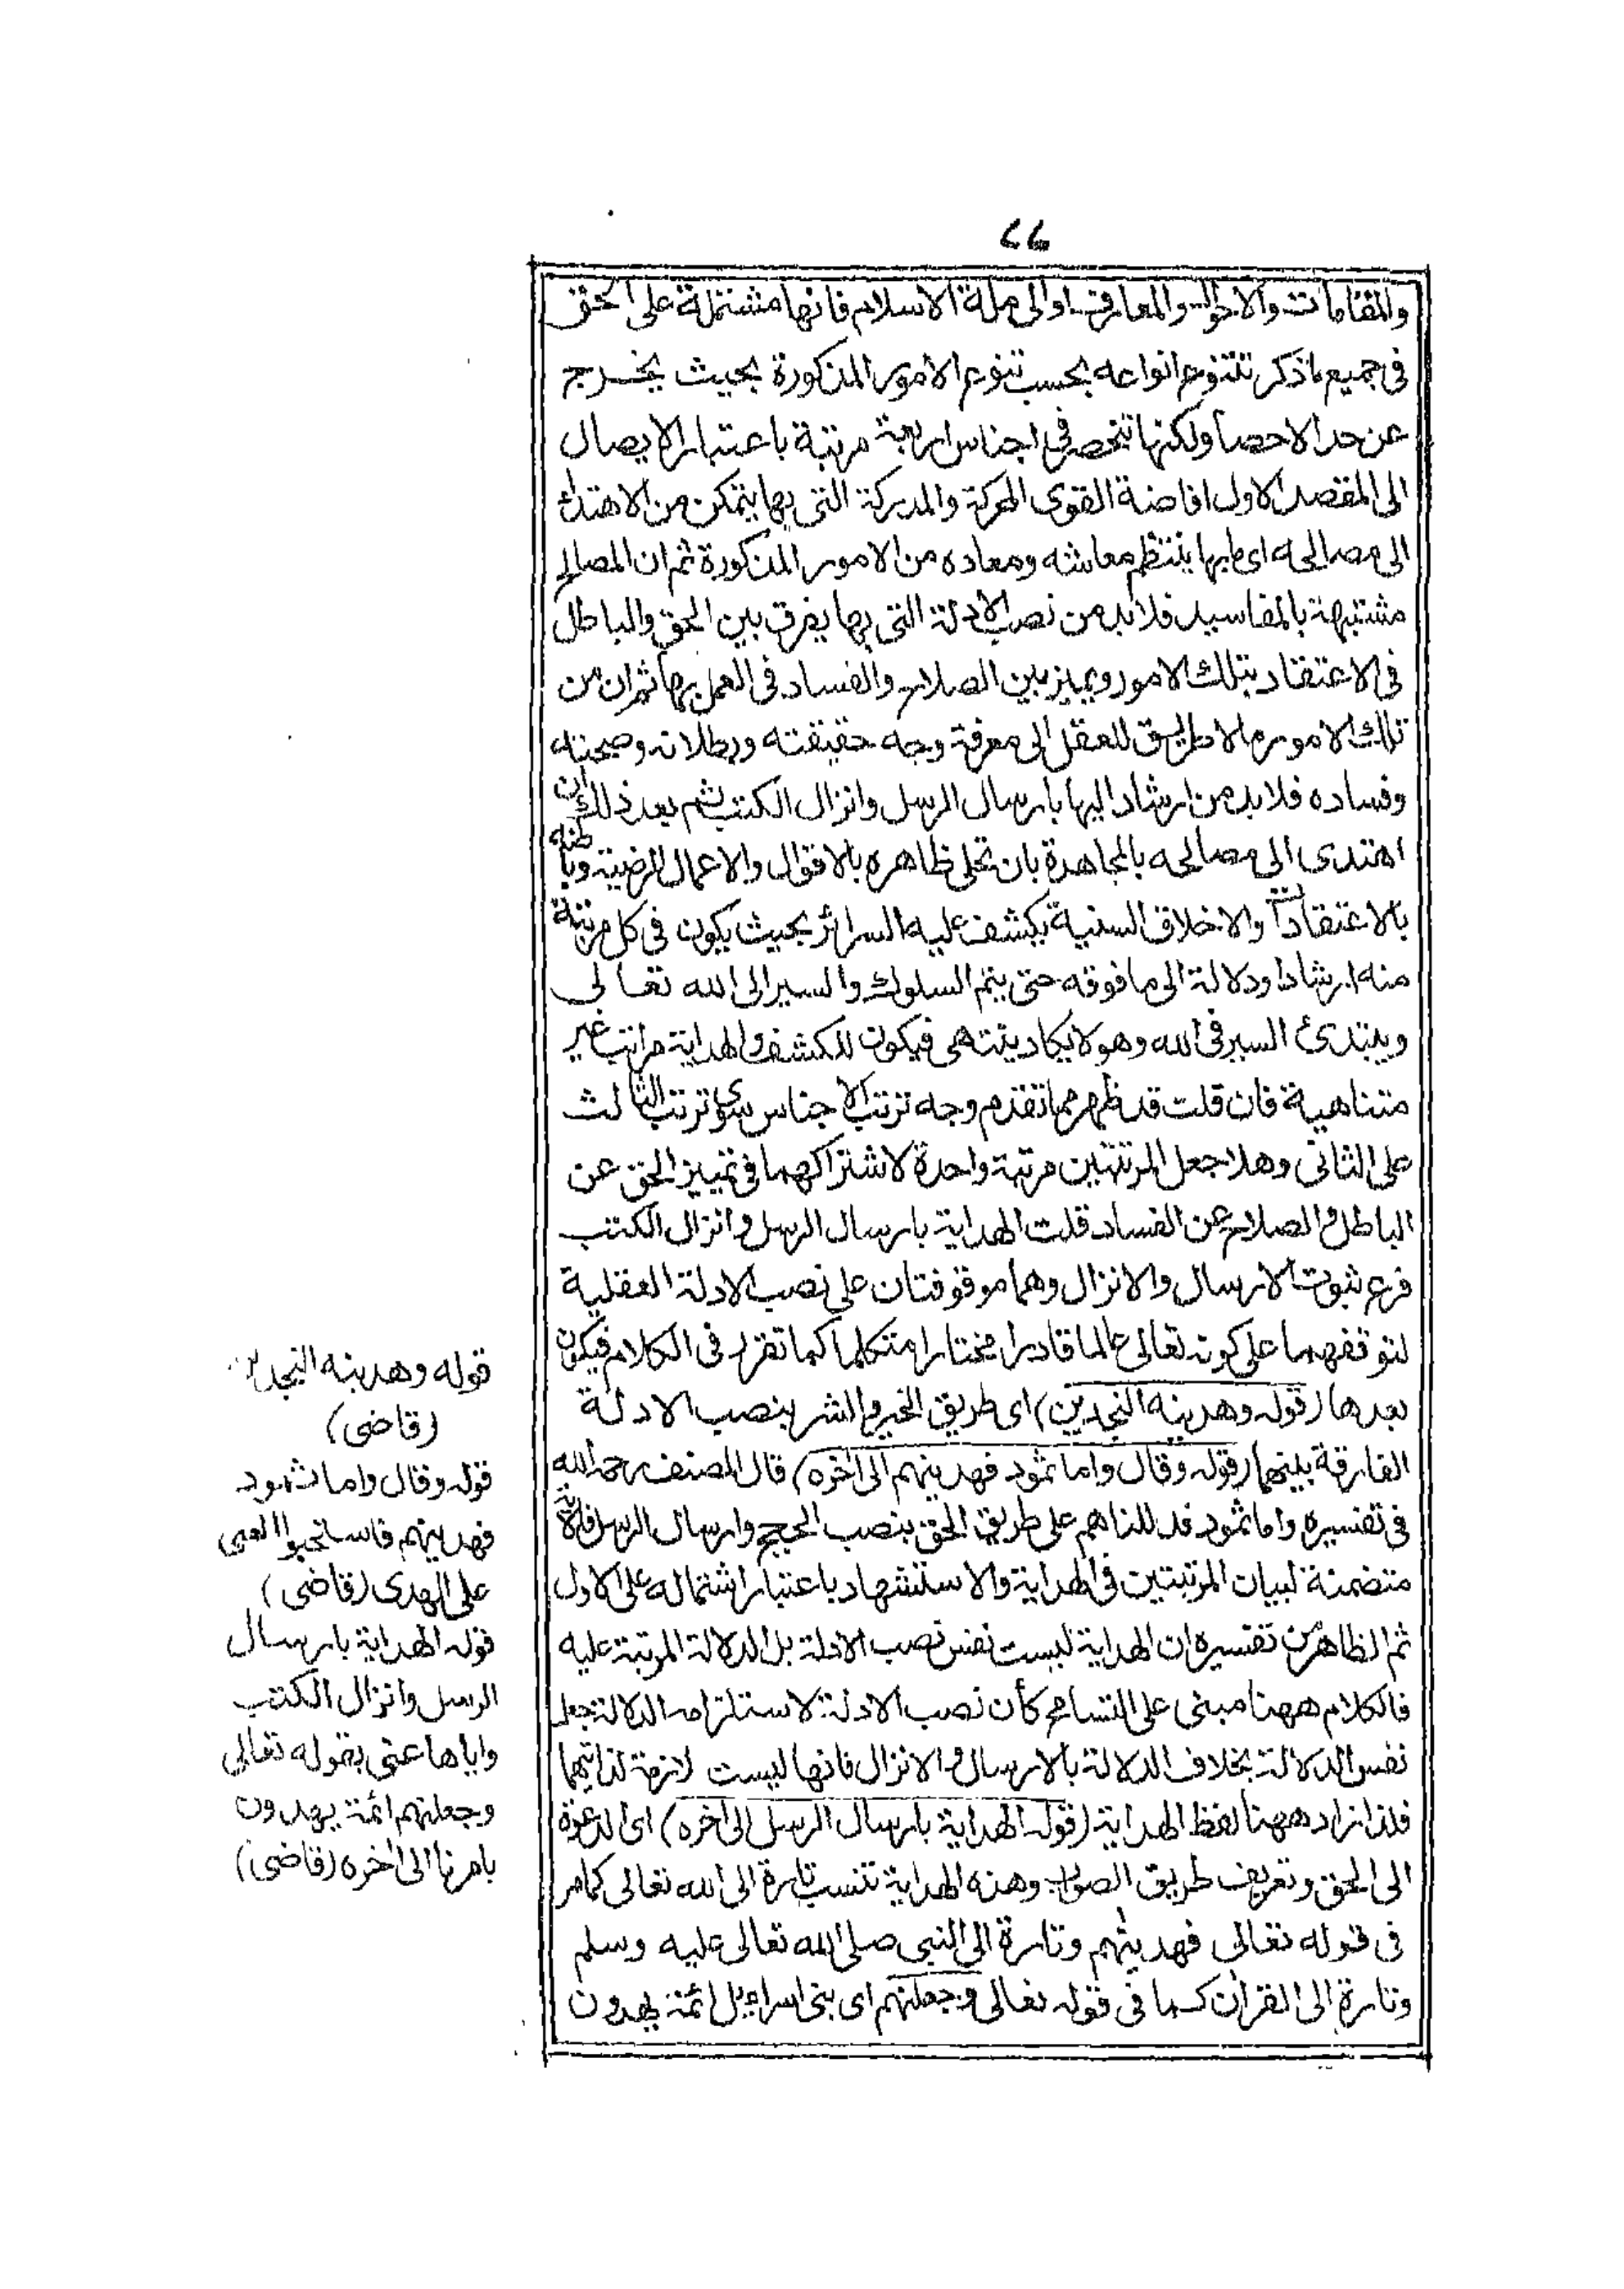 ٢٦
والمقامات والاحوال والمعارف اوالى ملة الاسلام فانها مشتملة على الحق
فى جميع ماذكر تتنوع انواعه بحسب تنوع الامور المذكورة بحيث يخرج
عن حد الاحصا ولكنها تنحصر فى اجناس اربعة مرتبة باعتبار الايصال
الى المقصد الاول افاضة القوى المحركة والمدركة التى بها يتمكن من الاهتداء
الى مصالحه اى مابها ينتظم معاشه ومعاده من الامور المذكورة ثم ان المصالح
مشتبهة بالمفاسد فلابد من نصب الادلة التى بها يفرق بين الحق والباطل
فى الاعتقاد بتلك الامور ويميز بين الصلاح والفساد فى العمل بها ثم ان من
تلك الامور مالا طريق للعقل الى معرفة وجه حقيقته وبطلانه وصحته
وفساده فلابد من ارشاد اليها بارسال الرسل وانزال الكتب ثم بعد ذلك ان
اهتدى الى مصالحه بالمجاهدة بان تحلى ظاهره بالاقوال والاعمال المرضية وباطنه
بالاعتقادات والاخلاق السنية يكشف عليه السرائر بحيث يكون فى كل مرتبة
منه ارشادا ودلالة الى ما فوقه حتى يتم السلوك والسير الى الله تعالى
ويبتدئ السير فى الله وهو لايكاد ينتهى فيكون للكشف والهداية مراتب غير
متناهية فان قلت قد ظهر مما تقدم وجه ترتب الاجناس سوى ترتب الثالث
على الثانى وهلا جعل المرتبتين مرتبة واحدة لاشتراكهما فى تمييز الحق عن
الباطل والصلاح عن الفساد قلت الهداية بارسال الرسل وانزال الكتب
فرع ثبوت الارسال والانزال وهما موقوفتان على نصب الادلة العقلية
لتوقفهما على كونه تعالى عالما قادرا مختارا متكلما كما تقرر فى الكلام فيكون
بعدها (قوله وهدينه النجدين) اى طريق الخير والشر بنصب الادلة
الفارقة بينهما (قوله وقال واما ثمود فهدينهم الى اخره) قال المصنف رحمه الله
فى تفسيره واما ثمود فدللناهم على طريق الحق بنصب الحجج وارسال الرسل فالاية
متضمنة لبيان المرتبتين فى الهداية والاستشهاد باعتبار اشتماله على الاول
ثم الظاهر من تفسيره ان الهداية ليست نفس نصب الادلة بل الدلالة المرتبة عليه
فالكلام ههنا مبنى على التسامح كأن نصب الادلة لاستلزامه الدلالة جعل
نفس الدلالة بخلاف الدلالة بالارسال والانزال فانها ليست لازمة لذاتيهما
فلذا زاد ههنا لفظ الهداية (قوله الهداية بارسال الرسل الى اخره) اى الدعوة
الى الحق وتعريف طريق الصواب وهذه الهداية تنسب تارة الى الله تعالى كما مر
فى قوله تعالى فهدينهم وتارة الى النبى صلى الله تعالى عليه وسلم
وتارة الى القران كما فى قوله تعالى وجعلنهم اى بنى اسرائيل ائمة يهدون
قوله وهدينه النجدين
(قاضى)
قوله وقال واما ثمود
فهدينهم فاستحبوا العمى
على الهدى (قاضى)
قوله الهداية بارسال
الرسل وانزال الكتب
واياها عنى بقوله تعالى
وجعلنهم ائمة يهدون
بامرنا الى اخره (قاضى)